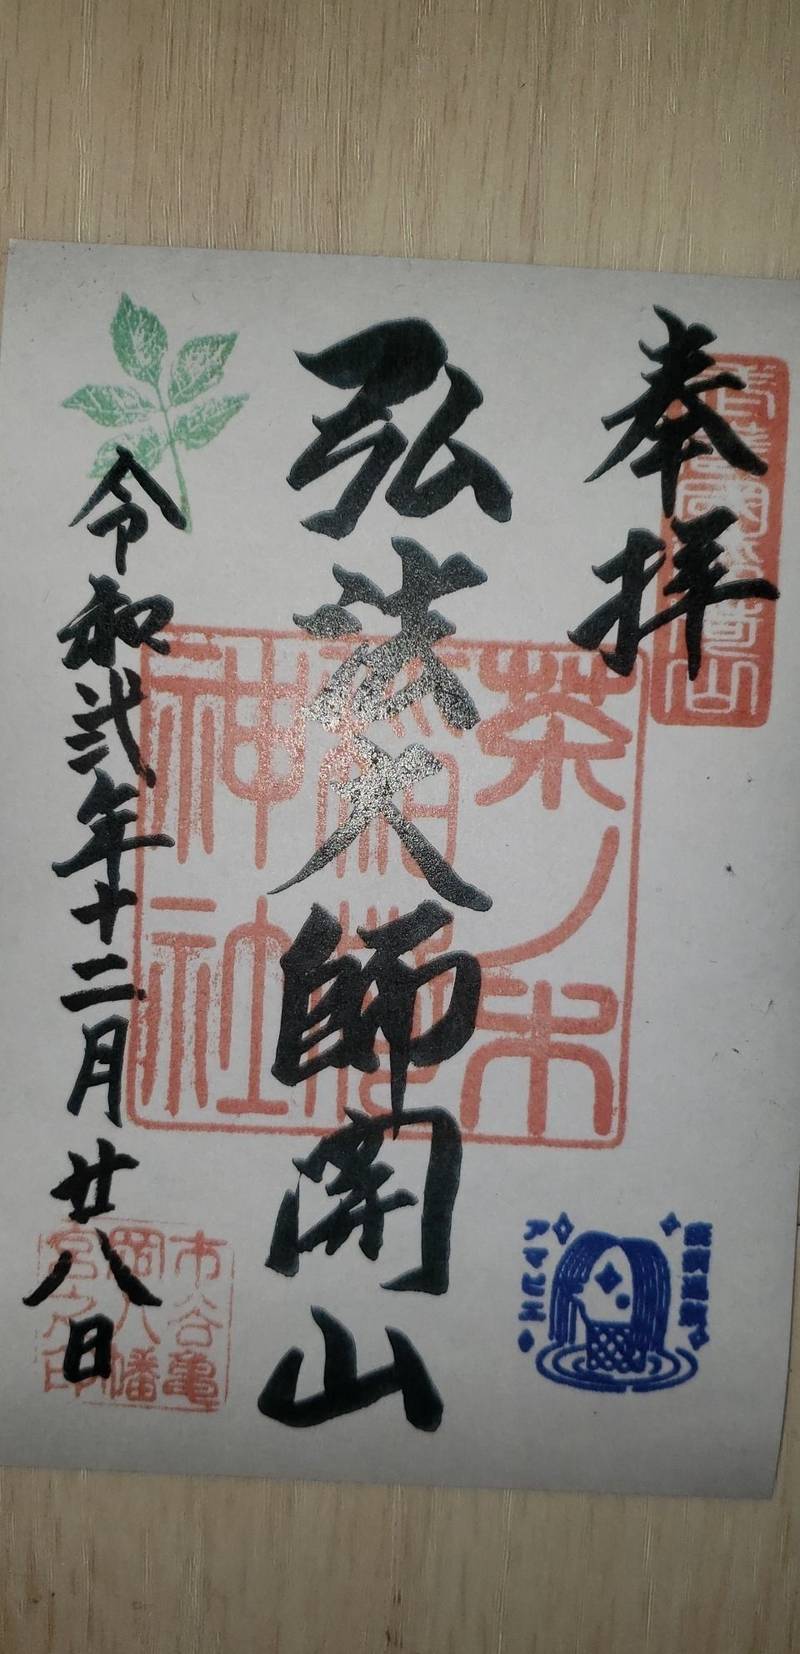 奉拝
弘法大師開山
茶ノ木
稲荷
神社
令和弐年十二月廿八日
市谷亀
岡八幡
宮之印
アマビエ